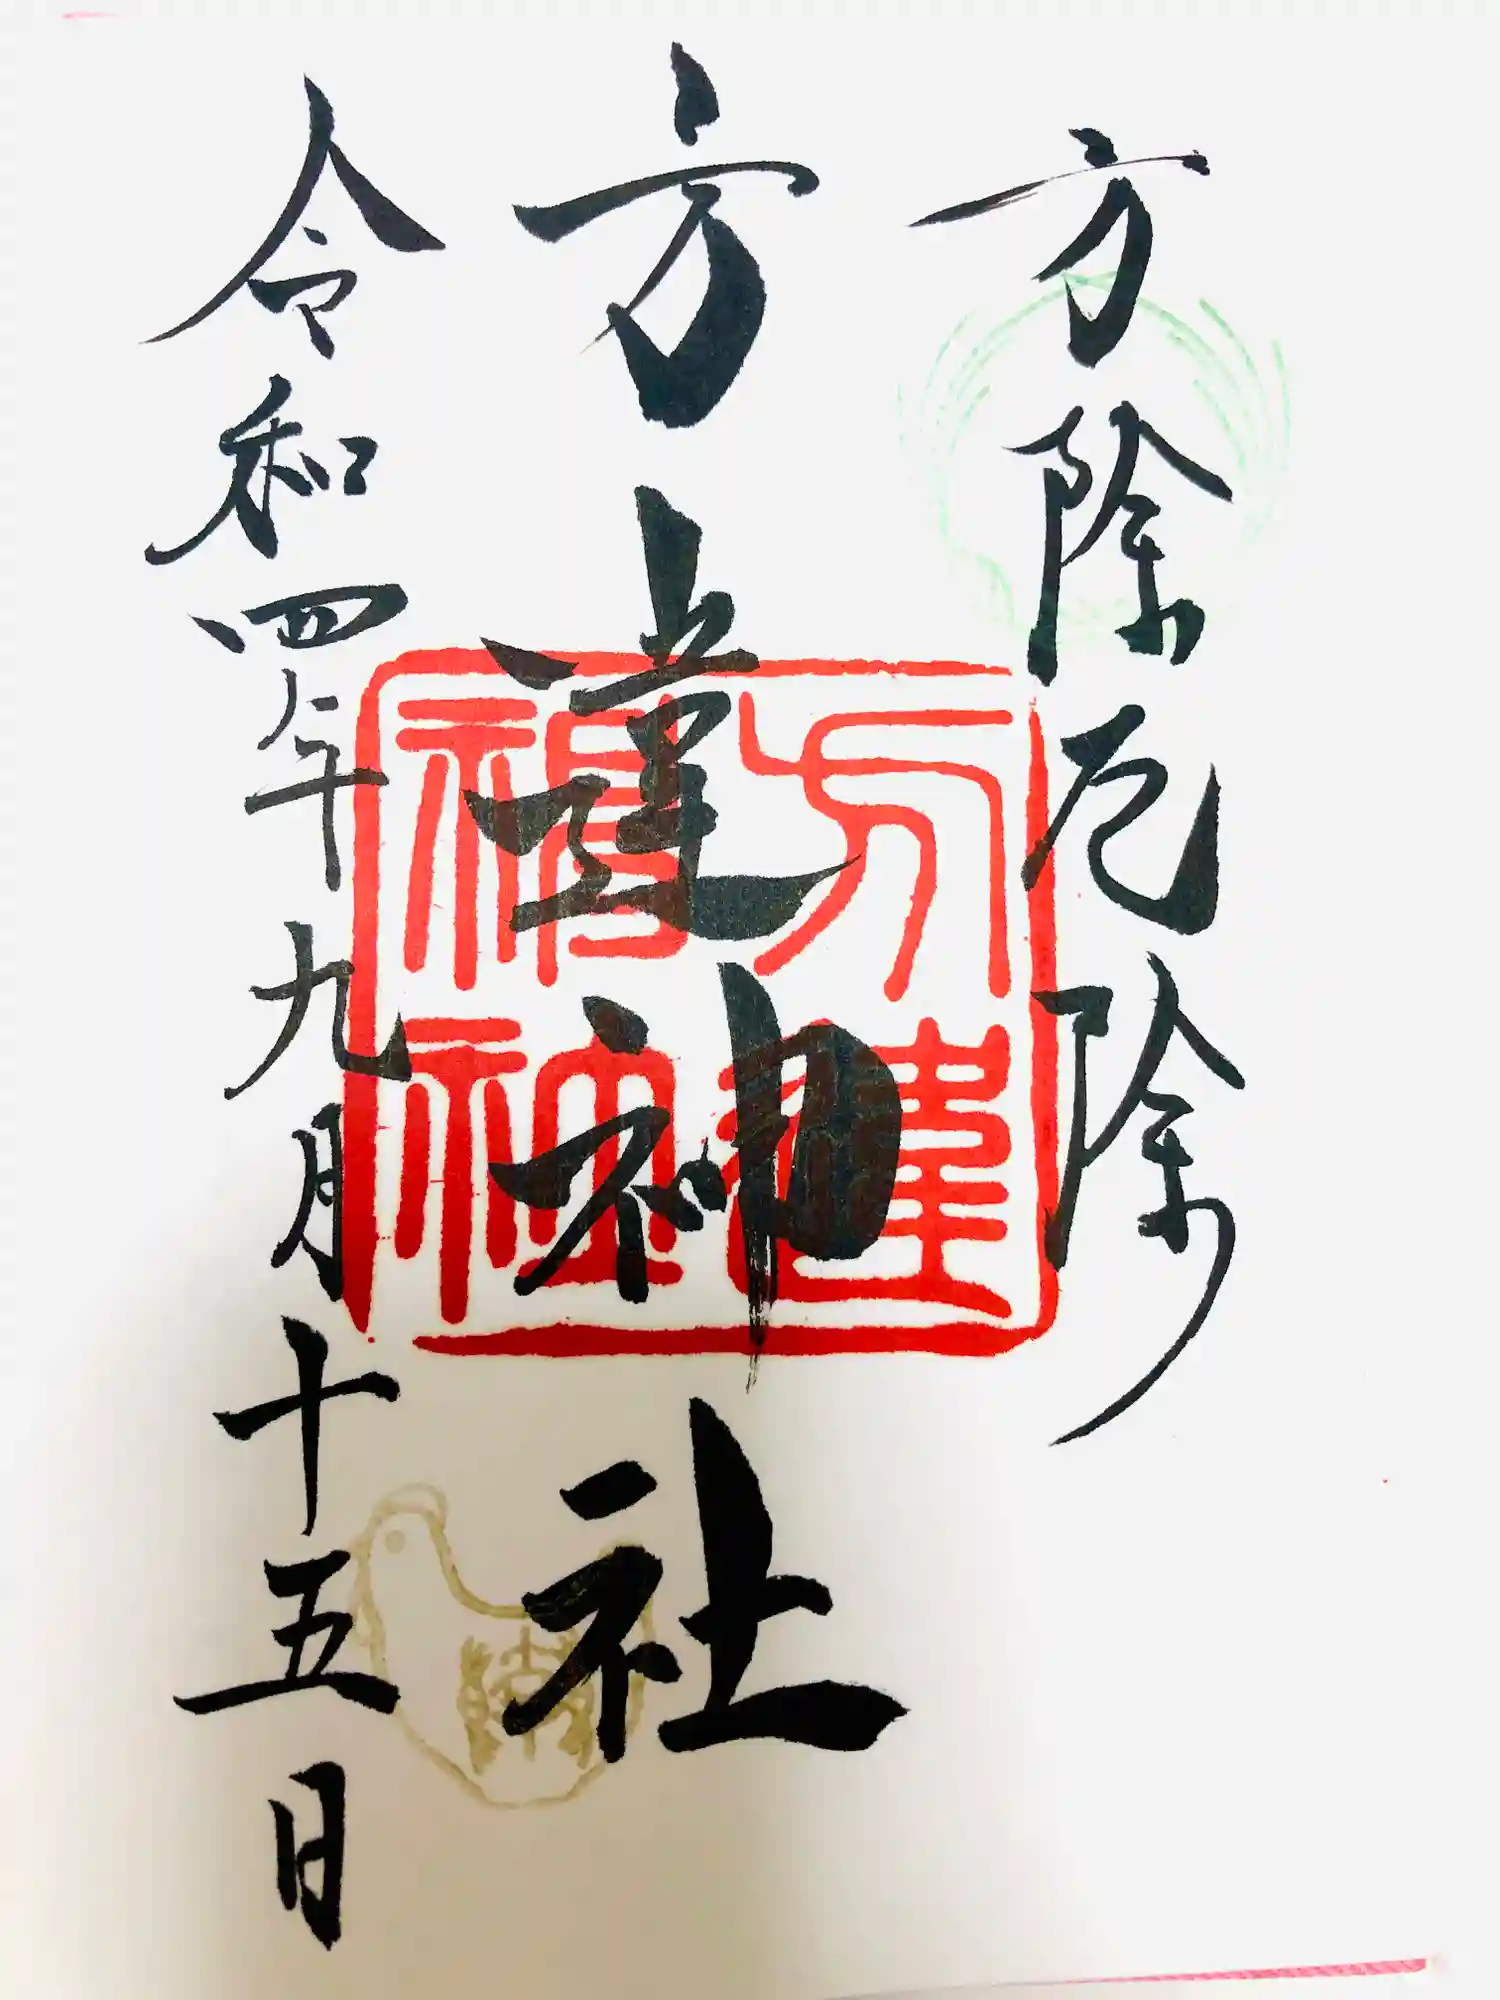 方除厄除
方違神社
令和四年九月十五日
方違
神社